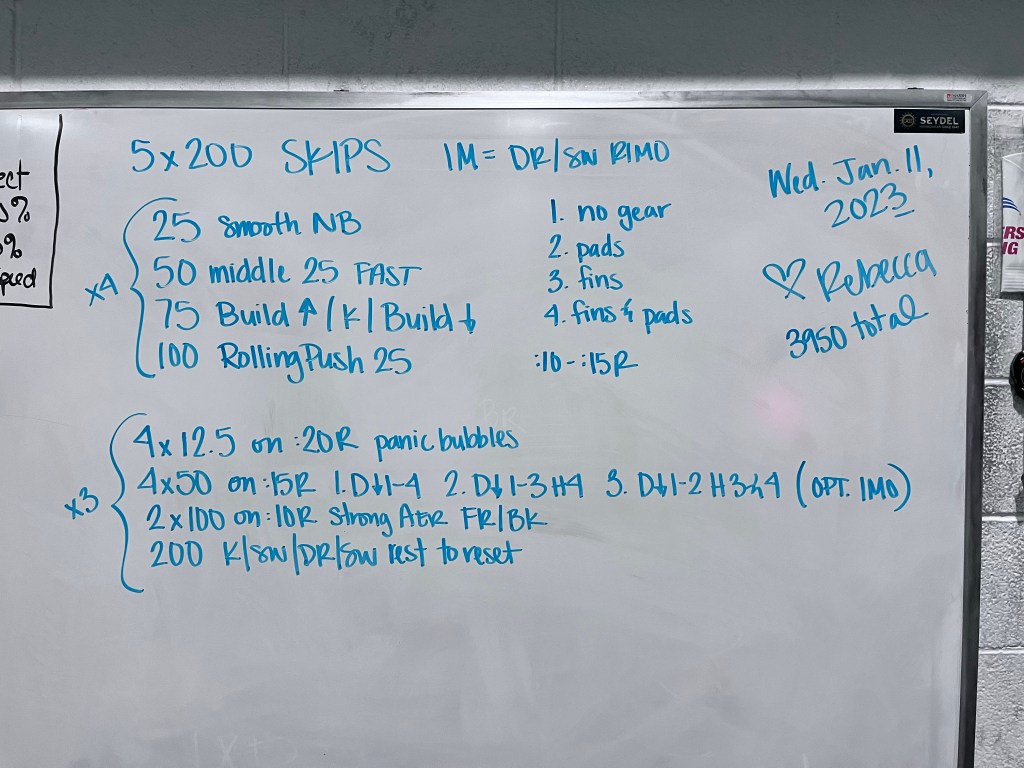 5 x 200 SKIPS IM = DR/SW RIMO
x4
25 smooth NB
50 middle 25 FAST
75 Build ↑ / K / Build ↓
100 Rolling Push 25
1. no gear
2. pads
3. fins
4. fins & pads
:10 - :15R
x3
4 x 12.5 on :20R panic bubbles
4 x 50 on :15R 1. D↓1-4 2. D↓1-3 H4 3. D↓1-2 H3&4 (OPT. IMO)
2 x 100 on :10R Strong AER FR/BK
200 K/SW/DR/SW rest to reset
Wed. Jan. 11,
2023
♡ Rebecca
3950 total
SEYDEL
ect
%
%